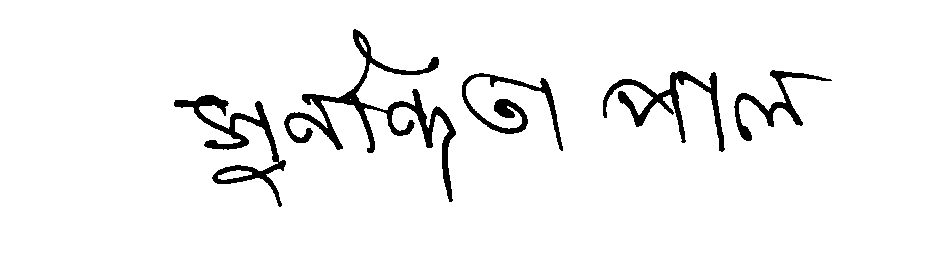 সুনন্দিতা পাল